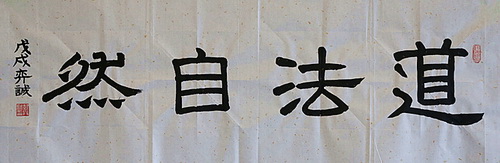 道法自然
戊戌弈誠